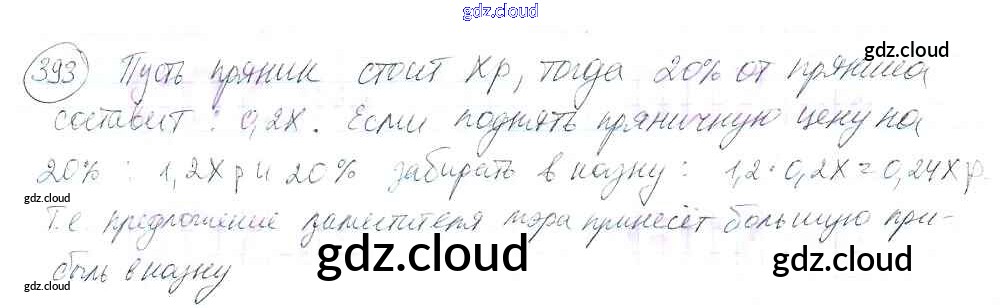 gdz.cloud
393 Пусть пряник стоит Xр, тогда 20% от пряника
gdz.cloud
составит : 0,2X. Если поднять пряничную цену на
20% : 1,2X р и 20% забирать в казну : 1,2·0,2X=0,24X р.
gdz.cloud
Т.е. предложение заместителя мэра принесёт большую при-
быль в казну
gdz.cloud
gdz.cloud
gdz.cloud